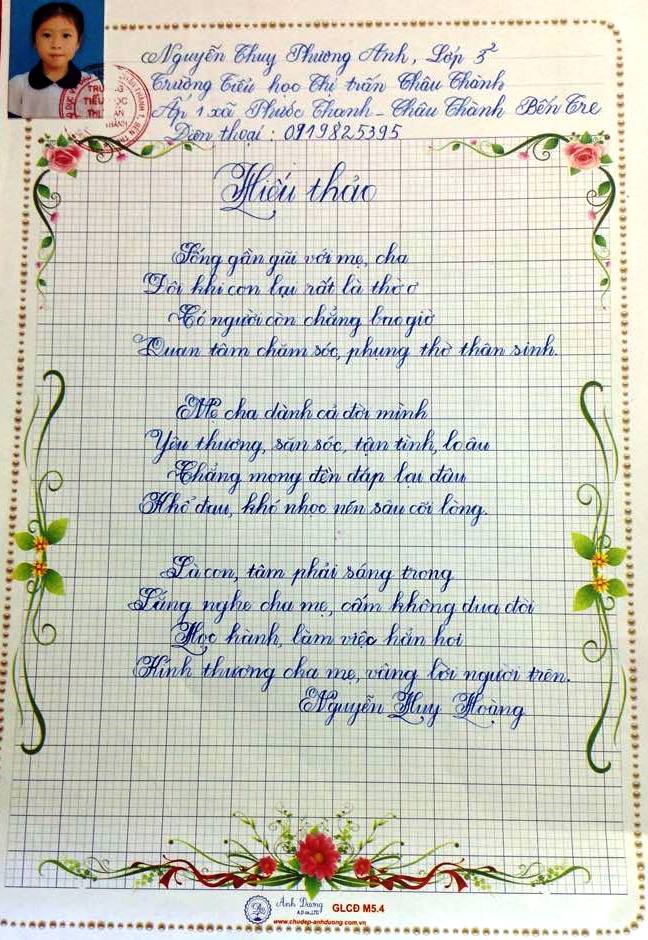 Nguyễn Thuy Phương Anh, Lớp 3²
Trường Tiểu học Thị trấn Châu Thành
Ấp 1 xã Phước Thanh - Châu Thành Bến Tre
Điện thoại : 0919825395
Hiếu thảo
Sống gần gũi với mẹ, cha
Đôi khi con lại rất là thờ ơ
Có người còn chẳng bao giờ
Quan tâm chăm sóc, phụng thờ thân sinh.
Mẹ cha dành cả đời mình
Yêu thương, săn sóc, tận tình, lo âu
Chẳng mong đền đáp lại đâu
Khổ đau, khó nhọc nén sâu cõi lòng.
Là con, tâm phải sáng trong
Lắng nghe cha mẹ, cấm không đua đòi
Học hành, làm việc hẳn hoi
Kính thương cha mẹ, vâng lời người trên.
Nguyễn Huy Hoàng
Anh Dương
A.D co.,LTD
GLCĐ M5.4
www.chudep-anhduong.com.vn